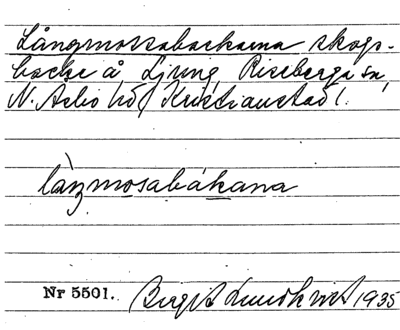 Långmossabackarna skogs-
backe å Ljung, Riseberga sn,
N. Åsbo hd, Kristianstad l.
làŋmosabákana
Nr 5501. Birgit Lundkvist 1935